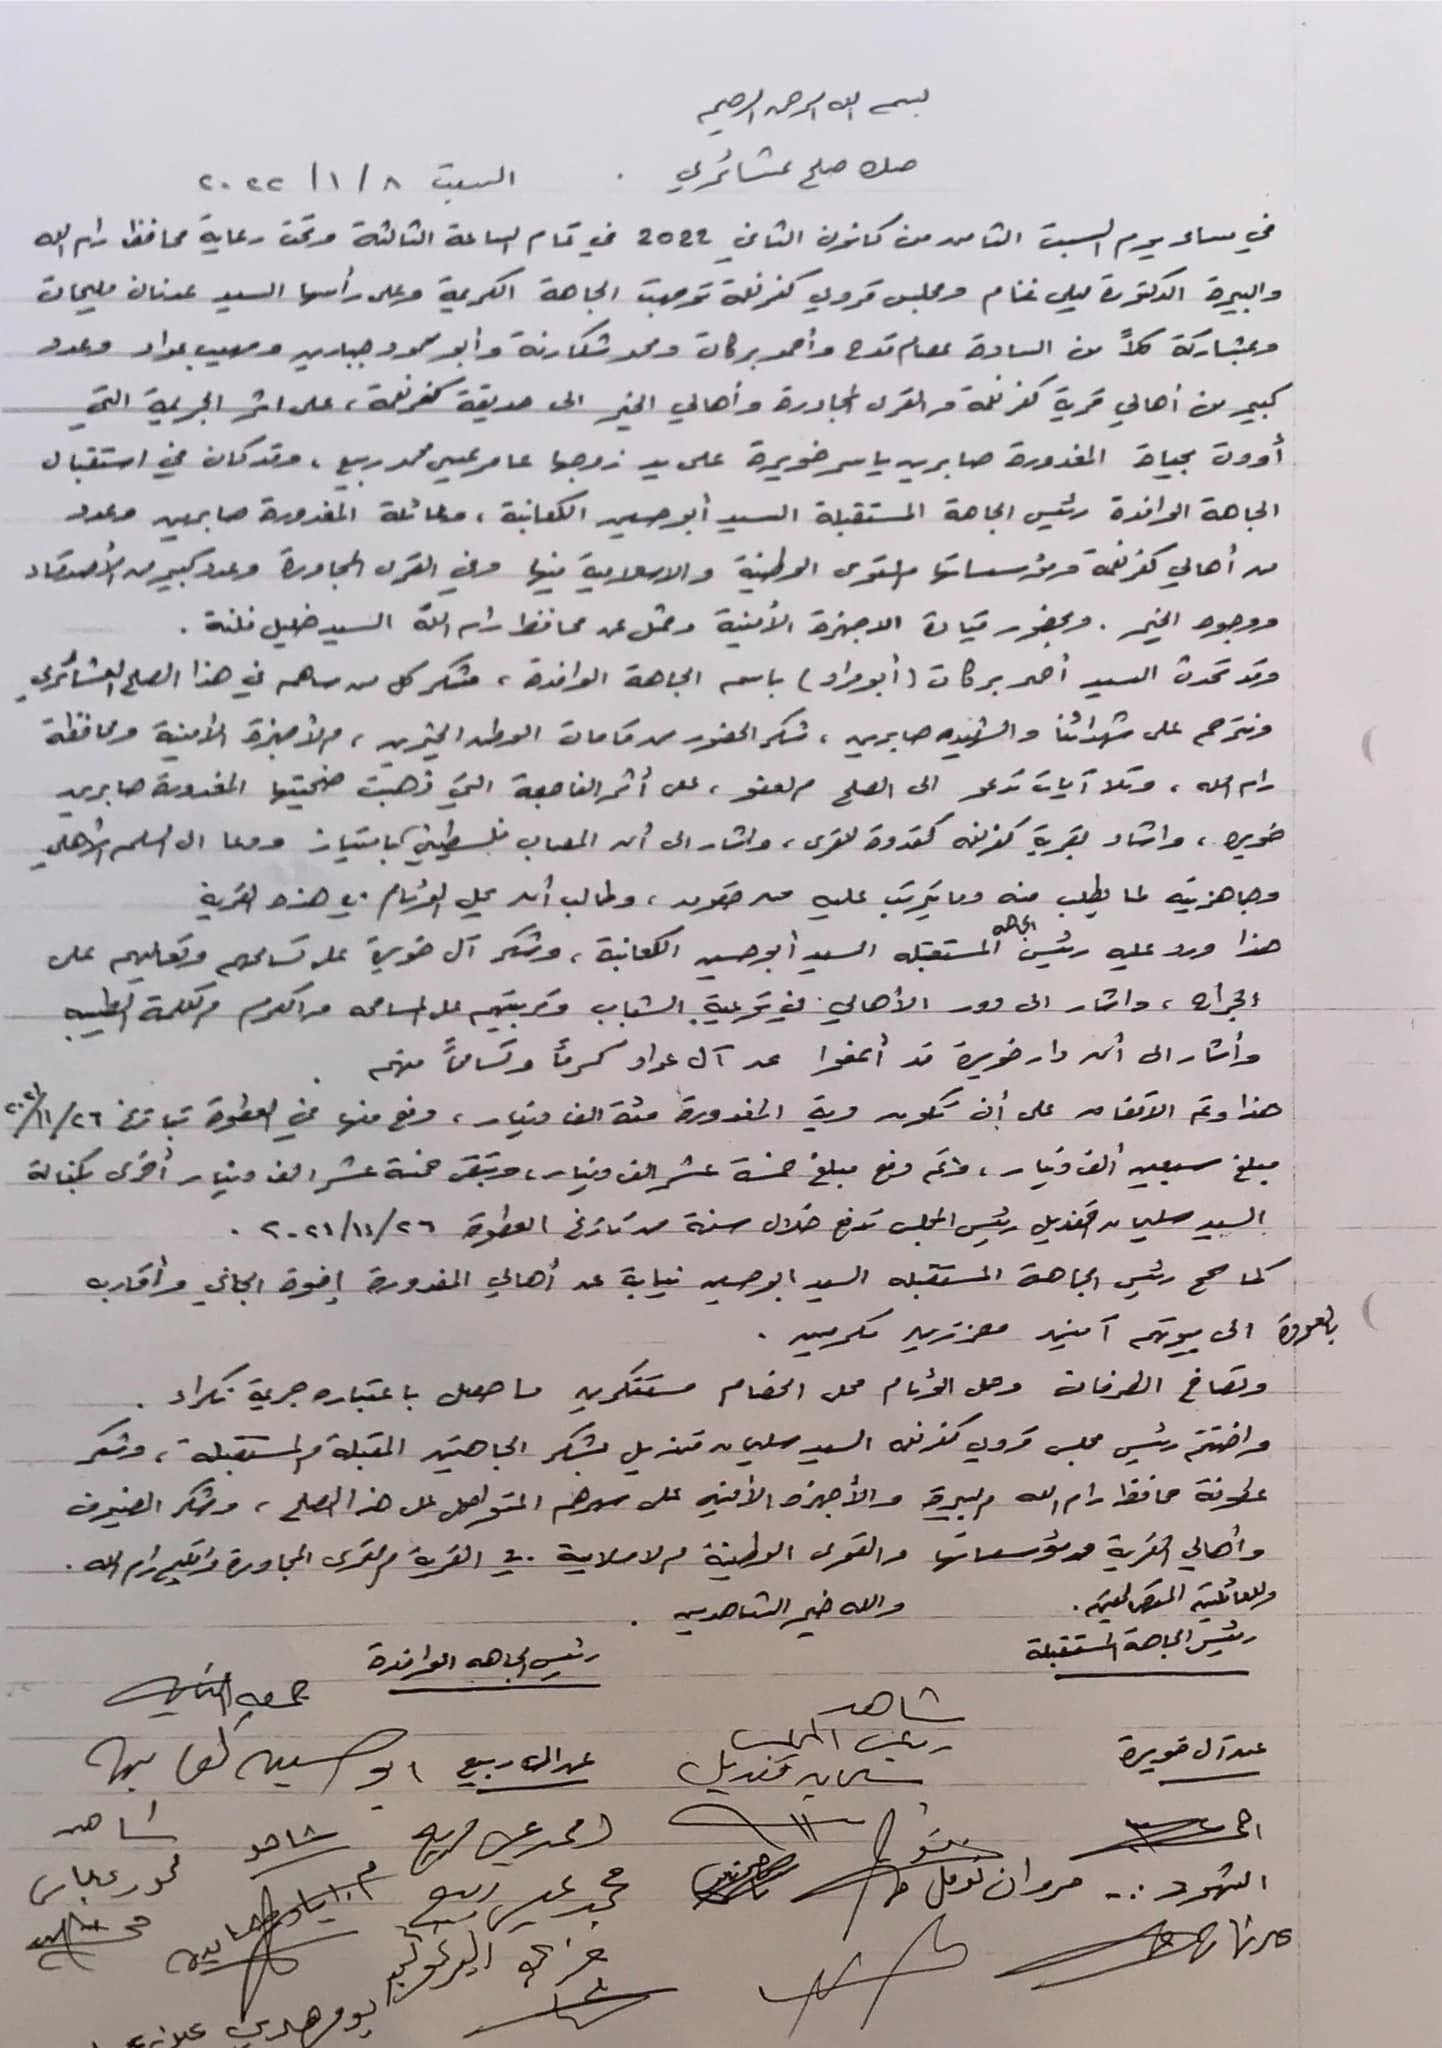 بسم الله الرحمن الرحيم
صك صلح عشائري . السبت ٨ / ١ / ٢٠٢٢
في مساء يوم السبت الثامن من كانون الثاني 2022 في تمام الساعة الثالثة وتحت رعاية محافظ رام الله
والبيرة الدكتورة ليلى غنام ومجلس قروي كفرنعمة توجهت الجاهة الكريمة وعلى رأسها السيد عدنان
وبمشاركة كلاً من السادة عصام قدح وأحمد بركات ومحمد شكارنة وأبو محمود جبارين ومهيب عواد وعدد
كبير من أهالي قرية كفرنعمة والقرى المجاورة وأهالي الخير الى حديقة كفرنعمة ، على اثر الجريمة التي
أودت بحياة المغدورة صابرين ياسر خويرة على يد زوجها عامر عيسى محمد ربيع ، وقد كان في استقبال
الجاهة الوافدة رئيس الجاهة المستقبلة السيد أبو حسين الكعابنة ، وعائلة المغدورة صابرين وعدد
من أهالي كفرنعمة ومؤسساتها والقوى الوطنية والاسلامية فيها وفي القرى المجاورة وعدد كبير من الأصدقاء
ووجوه الخير . وبحضور قيادة الاجهزة الأمنية وممثل عن محافظ رام الله السيد خليل
وقد تحدث السيد أحمد بركات ( أبو مراد ) باسم الجاهة الوافدة ، فشكر كل من ساهم في هذا الصلح العشائري
ونترحم على شهدائنا والشهيده صابرين ، شكر الحضور من قامات الوطن الخيرين ، والأجهزة الأمنية ومحافظة
رام الله ، وتلا آيات تدعو الى الصلح والعفو ، على أثر الفاجعة التي ذهبت ضحيتها المغدورة صابرين
خويره ، واشاد بقرية كفرنعمه كقدوة للقرى ، واشار الى أن المصاب فلسطيني بامتياز ودعا الى السلم الأهلي
وجاهزيته لما يطلب منه وما يترتب عليه من حقوق ، وطالب أن يحل الوئام في هذه القرية
هذا ورد عليه رئيس الجاهه المستقبله السيد أبو حسين الكعابنة ، وشكر آل خويرة على تسامحهم وتعاليهم على
الجراح ، واشار الى دور الأهالي في توعية الشباب وتربيتهم على المسامحه والكرم والكلمة الطيبه
وأشار الى أن دار خويرة قد أعفوا عن آل عواد كرماً وتسامحاً منهم
هذا وتم الاتفاق على أن تكون دية المغدورة مئة الف دينار ، دفع منها في العطوة بتاريخ ٢٦ / ١١ / ٢٠٢١
مبلغ سبعين ألف دينار ، وتم دفع مبلغ خمسة عشر الف دينار ، وتبقى خمسة عشر الف دينار أخرى بكفالة
السيد سليمان قنديل رئيس المجلس تدفع خلال سنة من تاريخ العطوة ٢٦ / ١١ / ٢٠٢١ .
كما سمح رئيس الجاهة المستقبله السيد ابو حسين نيابة عن أهالي المغدورة إخوة الجاني وأقاربه
بالعودة الى بيوتهم آمنين معززين مكرمين .
وتصافح الطرفان وحل الوئام محل الخصام مستنكرين ما حصل باعتباره جريمة نكراء .
واختتم رئيس مجلس قروي كفرنعمه السيد سليمان قنديل بشكر الجاهتين المقبلة والمستقبلة ، وشكر
عطوفة محافظ رام الله والبيرة والأجهزه الأمنيه على سهرهم المتواصل على هذا الصلح ، وشكر الضيوف
وأهالي القرية ومؤسساتها والقوى الوطنية والاسلامية في القرية والقرى المجاورة واقليم رام الله .
وللعائلتين المتصالحتين . والله خير الشاهدين .
رئيس الجاهة المستقبلة رئيس الجاهه الوافدة
شاهد
عن آل خويرة رئيس المجلس عن ال ربيع ابو حسين كعابنه
سليمان قنديل
شاهد شاهد
الشهود :- مروان نوفل محمد عيسى ربيع محمود عباس